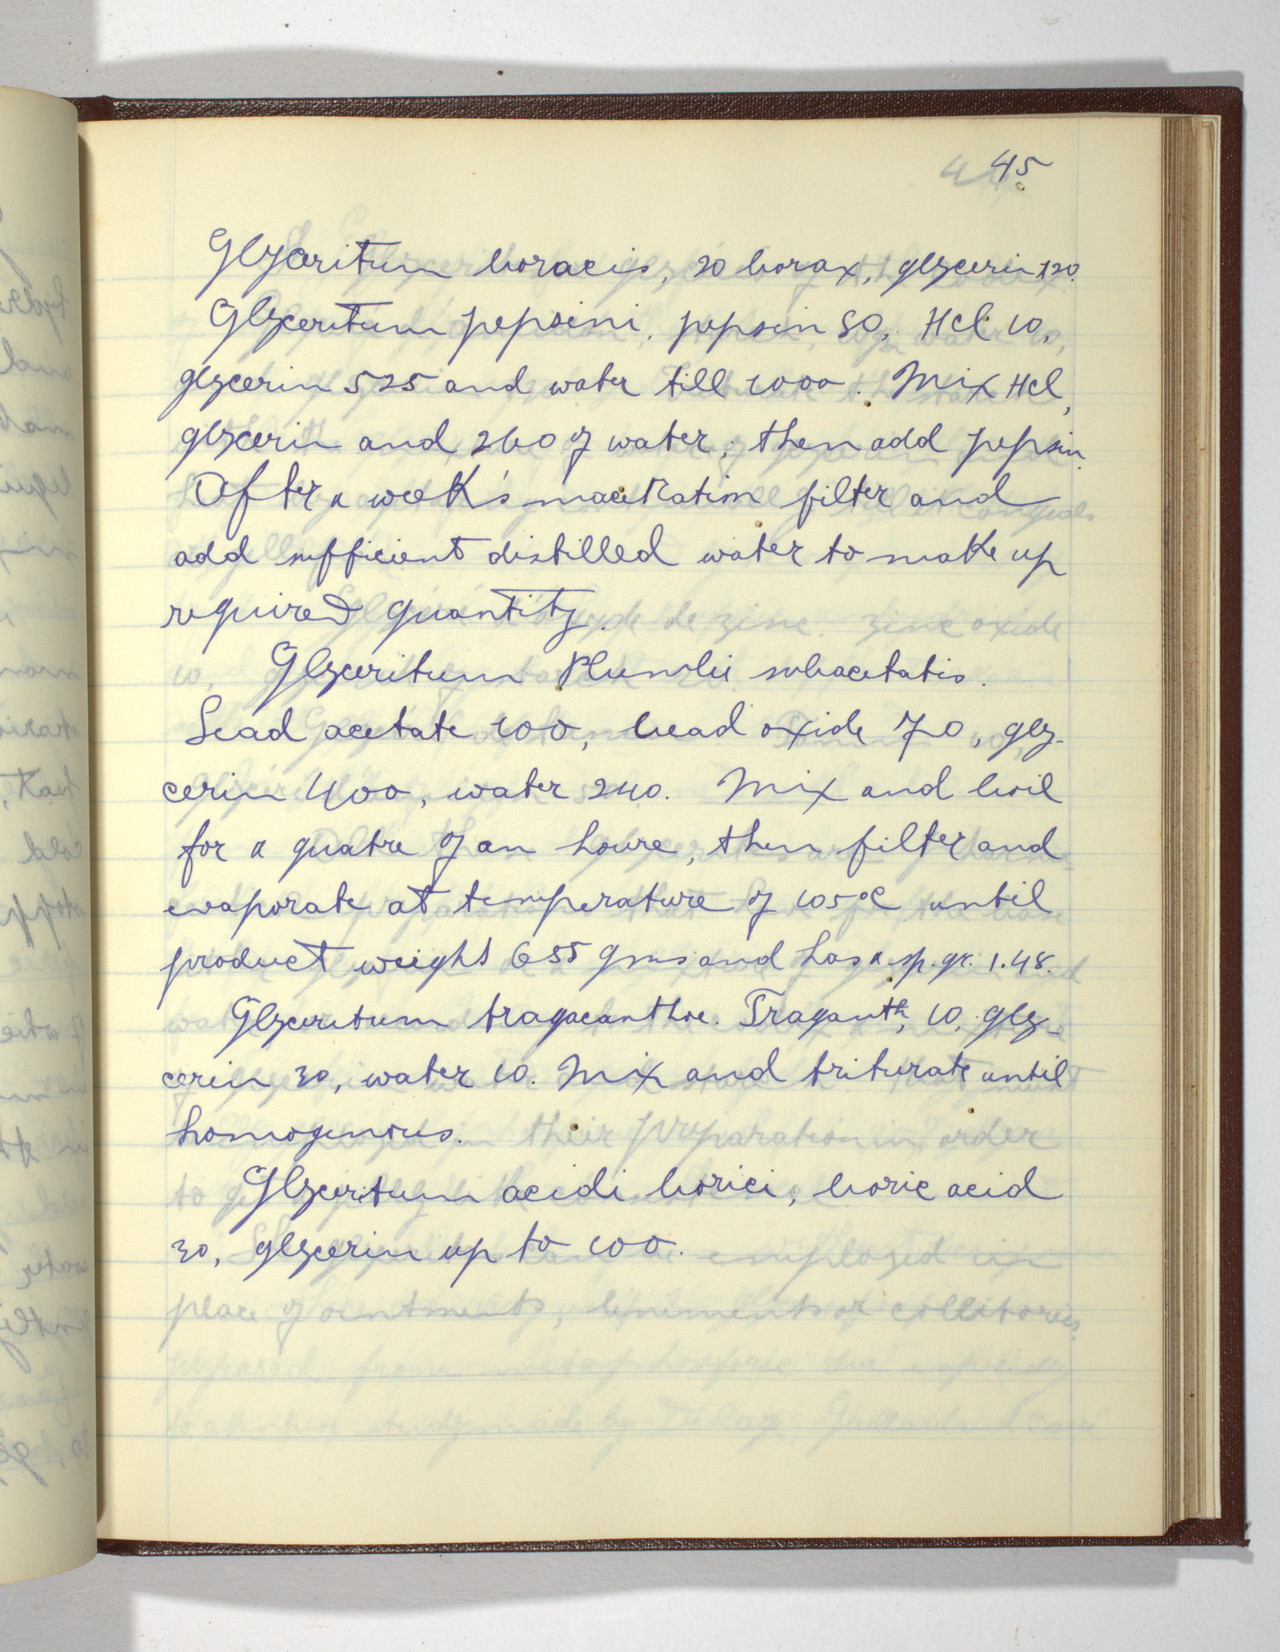 45
Glyceritum boracis, 20 borax, glycerin 120.
Glyceritum pepsini, pepsin 50, HCl 10,
glycerin 525 and water till 1000. Mix HCl,
glycerin and 260 of water; then add pepsin.
After a week's maceration filter and
add sufficient distilled water to make up
required quantity.
Glyceritum Plumbi subacetatis.
Lead acetate 100, lead oxide 70, gly-
cerin 400, water 240. Mix and boil
for a quatre of an houre, then filter and
evaporate at temperature of 105°C until
product weight 655 gms and has a sp. gr. 1.48.
Glyceritum tragacanthae. Traganth, 10, gly-
cerin 30, water 10. Mix and triturate until
homogenous.
Glyceritum acidi borici, boric acid
30, glycerin up to 100.